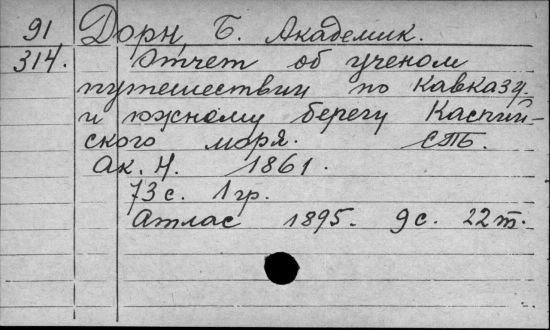 91 Дорн, Б. Академик.
314. Отчет об ученом
путешествии по Кавказу
и южному берегу Каспий-
ского моря. СПБ.
Ак. Н. 1861.
73 с. 1 гр.
Атлас 1895. 9 с. 22 т.